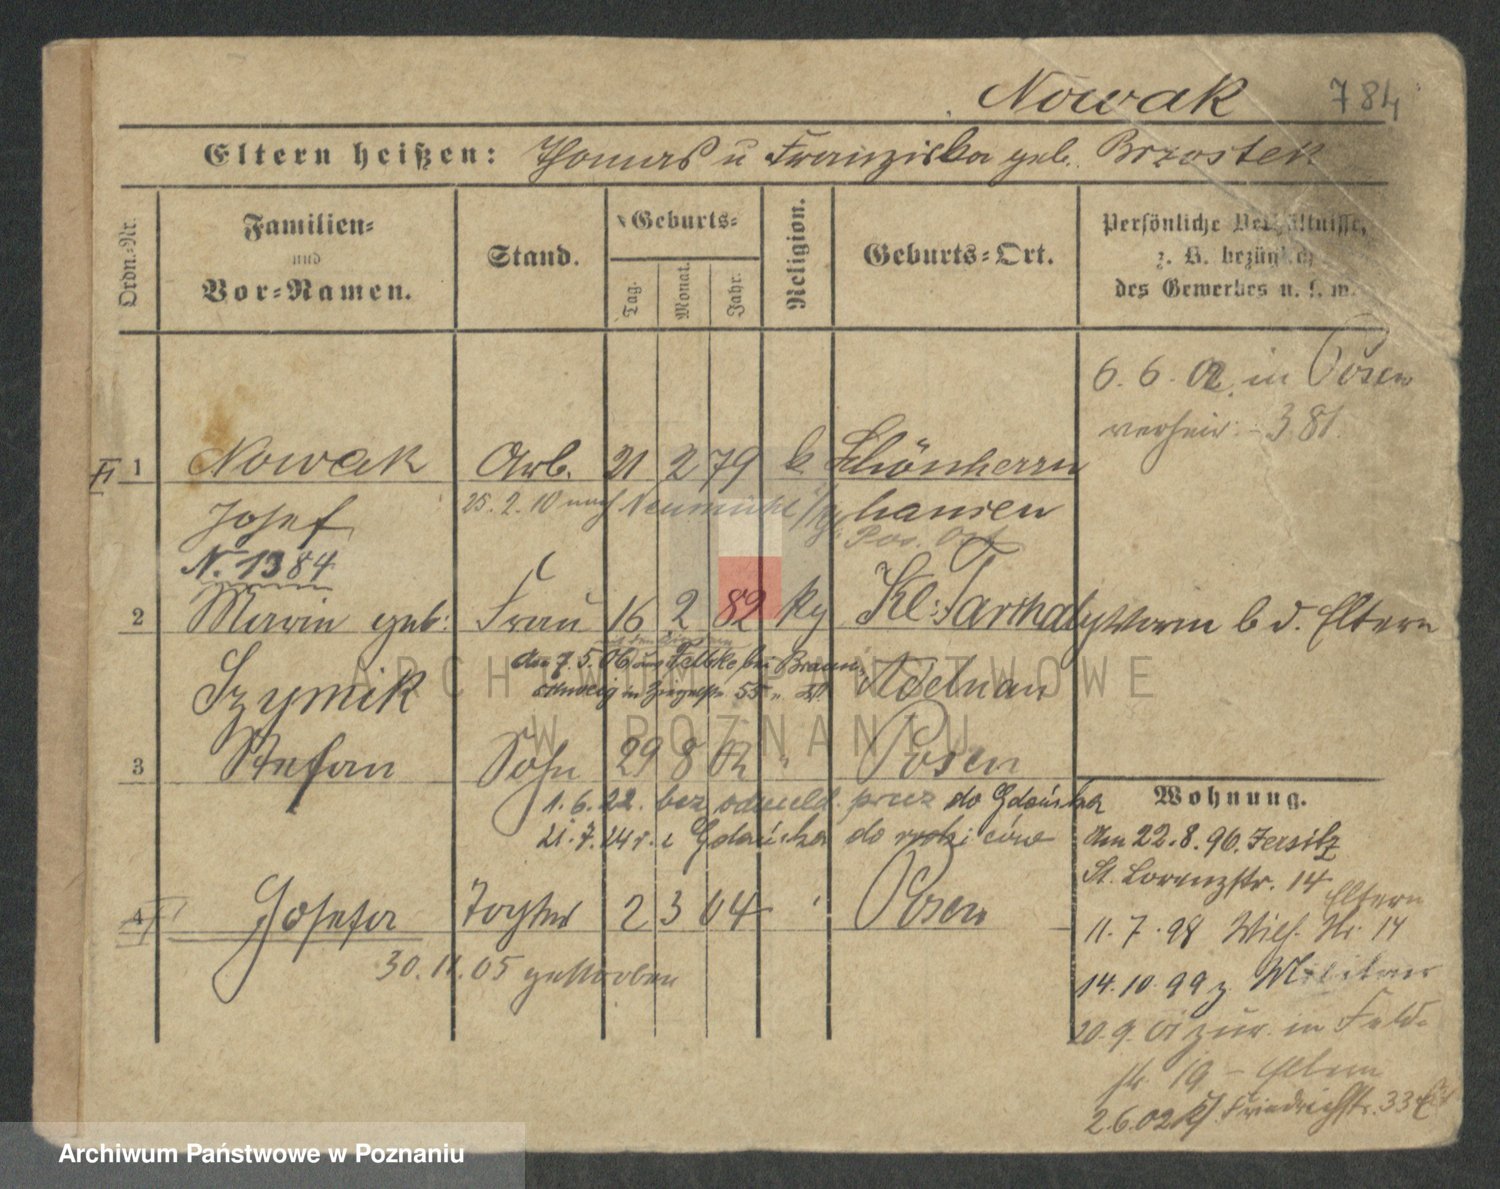 Nowak 784
Eltern heißen: Thomas u Franziska geb. Brzostek
Ordn.-Nr.
Familien-
und
Vor-Namen.
Stand.
Geburts-
Tag.
Monat.
Jahr.
Religion.
Geburts-Ort.
Persönliche Verhältnisse,
z. B. bezüglich
des Gewerbes u. s. w.
6. 6. 02. in Posen
verheir. - 381.
1 Nowak Arb. 21 2 79 k Schönherrn
Josef 25. 2. 10 nach Neumühl hausen
Pos. Ost
N. 1384
2 Marie geb: Frau 16 2 82 kg Kl: b d. Eltern
Szymik den 7. 5. 06 aus bei Braun
schweig in 55 Adelnau
3 Stefan Sohn 29 8 02 " Posen
1. 6. 22. bez odmeld. przez do Gdańska
21. 7. 24 r. z Gdańska do rodziców
4 Josefa Tochter 2 3 04 ' Posen
30. 11. 05 gestorben
Wohnung.
Am 22. 8. 96. Jersitz
St. Lorenzstr. 14
Eltern
11. 7. 98 14
14. 10. 99 z. Militär
20. 9. 01 zur. in Feld-
str 19 - Eltern
2. 6. 02 Friedrichstr. 33
ARCHIWUM PAŃSTWOWE
W POZNANIU
Archiwum Państwowe w Poznaniu